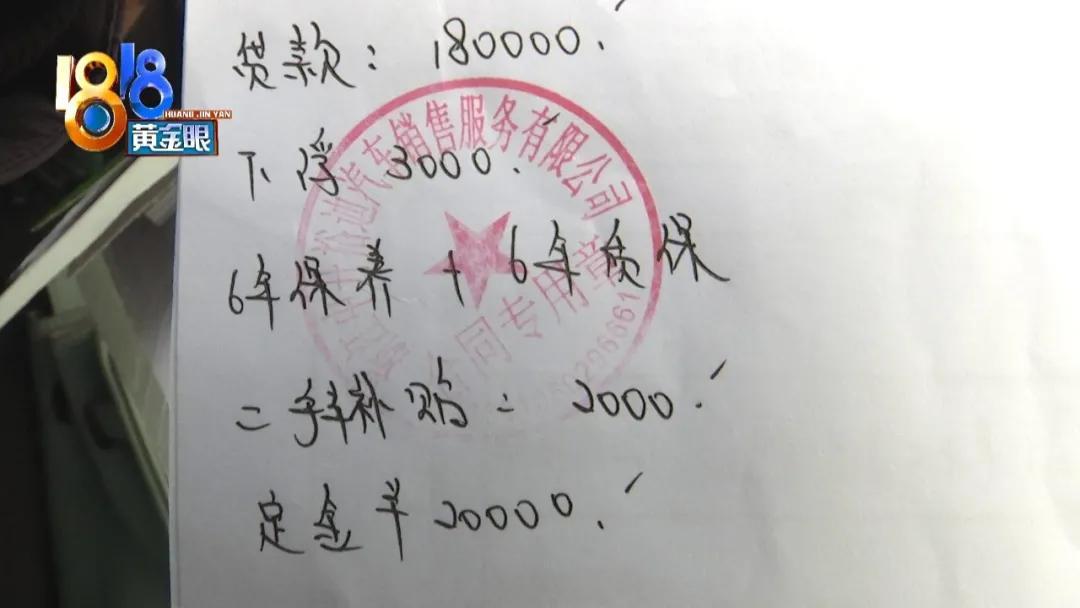 1818
HUANG JIN YAN
黄金眼
贷款：180000.
下浮 3000.
6年保养 + 6年质保
二手补贴 = 2000.
定金羊20000.
迪汽车销售服务有限公司
合同专用章